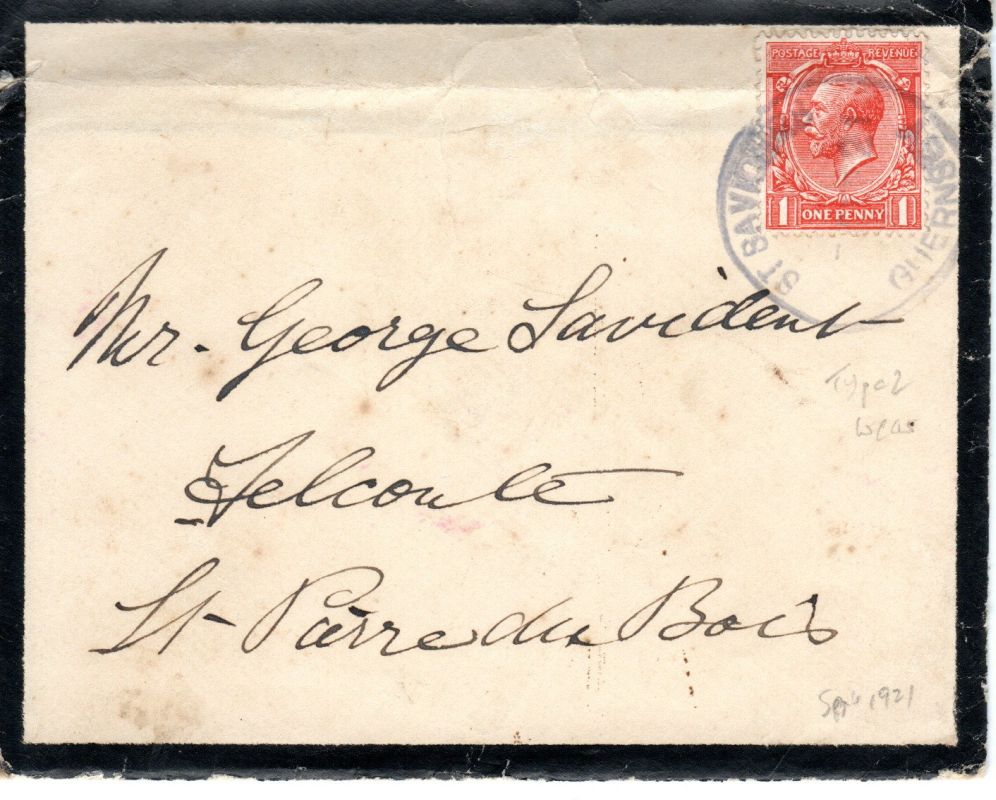 POSTAGE REVENUE
1 ONE PENNY 1
ST SAVIOUR GUERNSEY
Mr. George Savident
Felconte
St Pierre du Bois
Type 2
1921